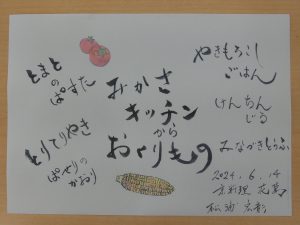 とまと
の
ぱすた
とりてりやき
ぱせりの
かおり
みかさ
キッチン
から
おくりもの
やきもろこし
ごはん
けんちん
じる
みながきとうふ
2024.6.14
京料理 花萬